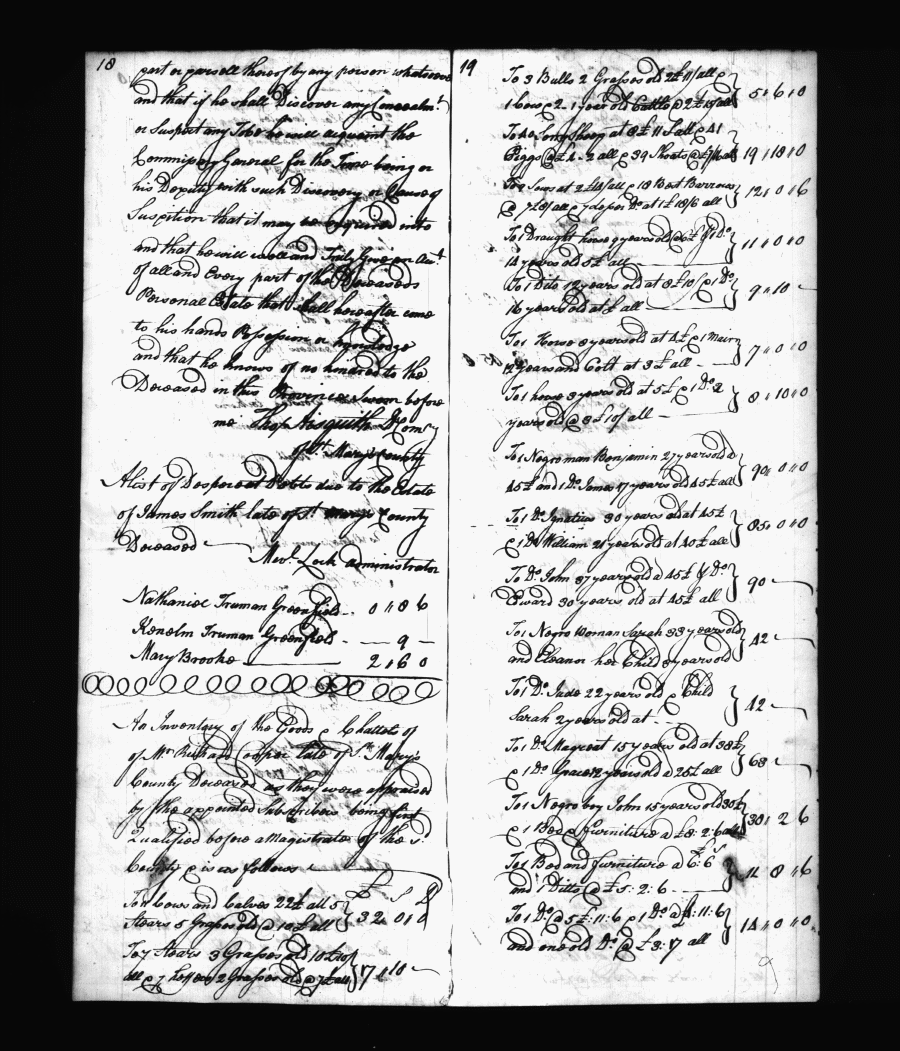 18
part or parsell thereof by any person whatsoever
and that if he shall Discover any Concealmt
or Suspect any Tobe he will acquaint the
Commissary General for the Time being or
his Deputy with such Discovery or Cause of
Suspition that it may be enquired into
and that he will well and Truly Give an Acct
of all and Every part of the Deceaseds
Personal Estate that shall hereafter come
to his hands Possession or knowledge
and that he knows of no kindred to the
Deceased in this Province Sworn before
me Thos Aisquith D Comry
of St Marys County
A list of Desperoat Debts due to the Estate
of James Smith late of St Marys County
Deceased
Lock administrator
Nathaniel Truman Greenfield 0 " 18 6
Kenelm Truman Greenfield - 9 -
Mary Brooke 2 " 6 0
An Inventory of the Goods & Chattels of
of Mr Richard Cooper late of St Mary's
County Deceased as they were appraised
by the appointed Subscribers being first
Qualified before a Magistrate of the sd
County & is as follows
£ S D
Cows and Calves 22£ all 5
Stears 5 Grasses old @ 10£ all } 32 " 0 " 0
To 7 Stears 3 Grasses old
all & 7 Heffers 2 Grasses old @ 7£ all } 17 " 10 -
19
To 3 Bulls 2 Grasses old all &
1 cow & 2 - 1 year old Cattle @ all } 5 " 6 " 0
Sheep at all & 41
Piggs @ all & 39 Shoats @ all } 19 " 18 " 0
Sows at all & 18 Best Barrows
@ all & 7 Do at all } 12 " 0 " 6
To 1 Draught horse 9 years old @ 6£ & 1 Do
14 years old 5£ all } 11 " 0 " 0
To 1 Dito 12 years old at & 1 Do
16 years old at all } 9 " 10 -
To 1 Horse 8 years old at 4£ & 1 Mair
years and Colt at 3£ all - } 7 " 0 " 0
To 1 horse 3 years old at 5£ & 1 Do 2
years old @ 3£10/ all - } 8 " 10 " 0
To 1 Negro man Benjamin 27 years old a
45£ and 1 Do James 17 years old 45£ all } 90 " 0 " 0
To 1 Do Ignatius 30 years old at 45£
& 1 Do William 21 years old at 40£ all } 85 " 0 " 0
To Do John 37 years old a 45£ & 1 Do
Edward 30 years old at 45£ all } 90 -
To 1 Negro Woman Sarah 33 years old
and Eleanor her Child years old } 42 -
To 1 Do Jude 22 years old & Child
Sarah 2 years old at - } 42 -
To 1 Do Magreat 15 years old at 38£
& 1 Do Grace 12 years old a 25£ all } 63 -
To 1 Negro boy John 15 years old
& 1 Bed & furniture a £8 : 2 : 6 all } 38 " 2 6
To 1 Bed and furniture a £6 : 6
and 1 Ditto @ £5 : 2 : 6 } 11 8 " 6
To 1 Do @ 5£ : 11 : 6 & 1 Do @ : 11 : 6
and one old Do @ £3 : 17 all } 14 " 0 " 0